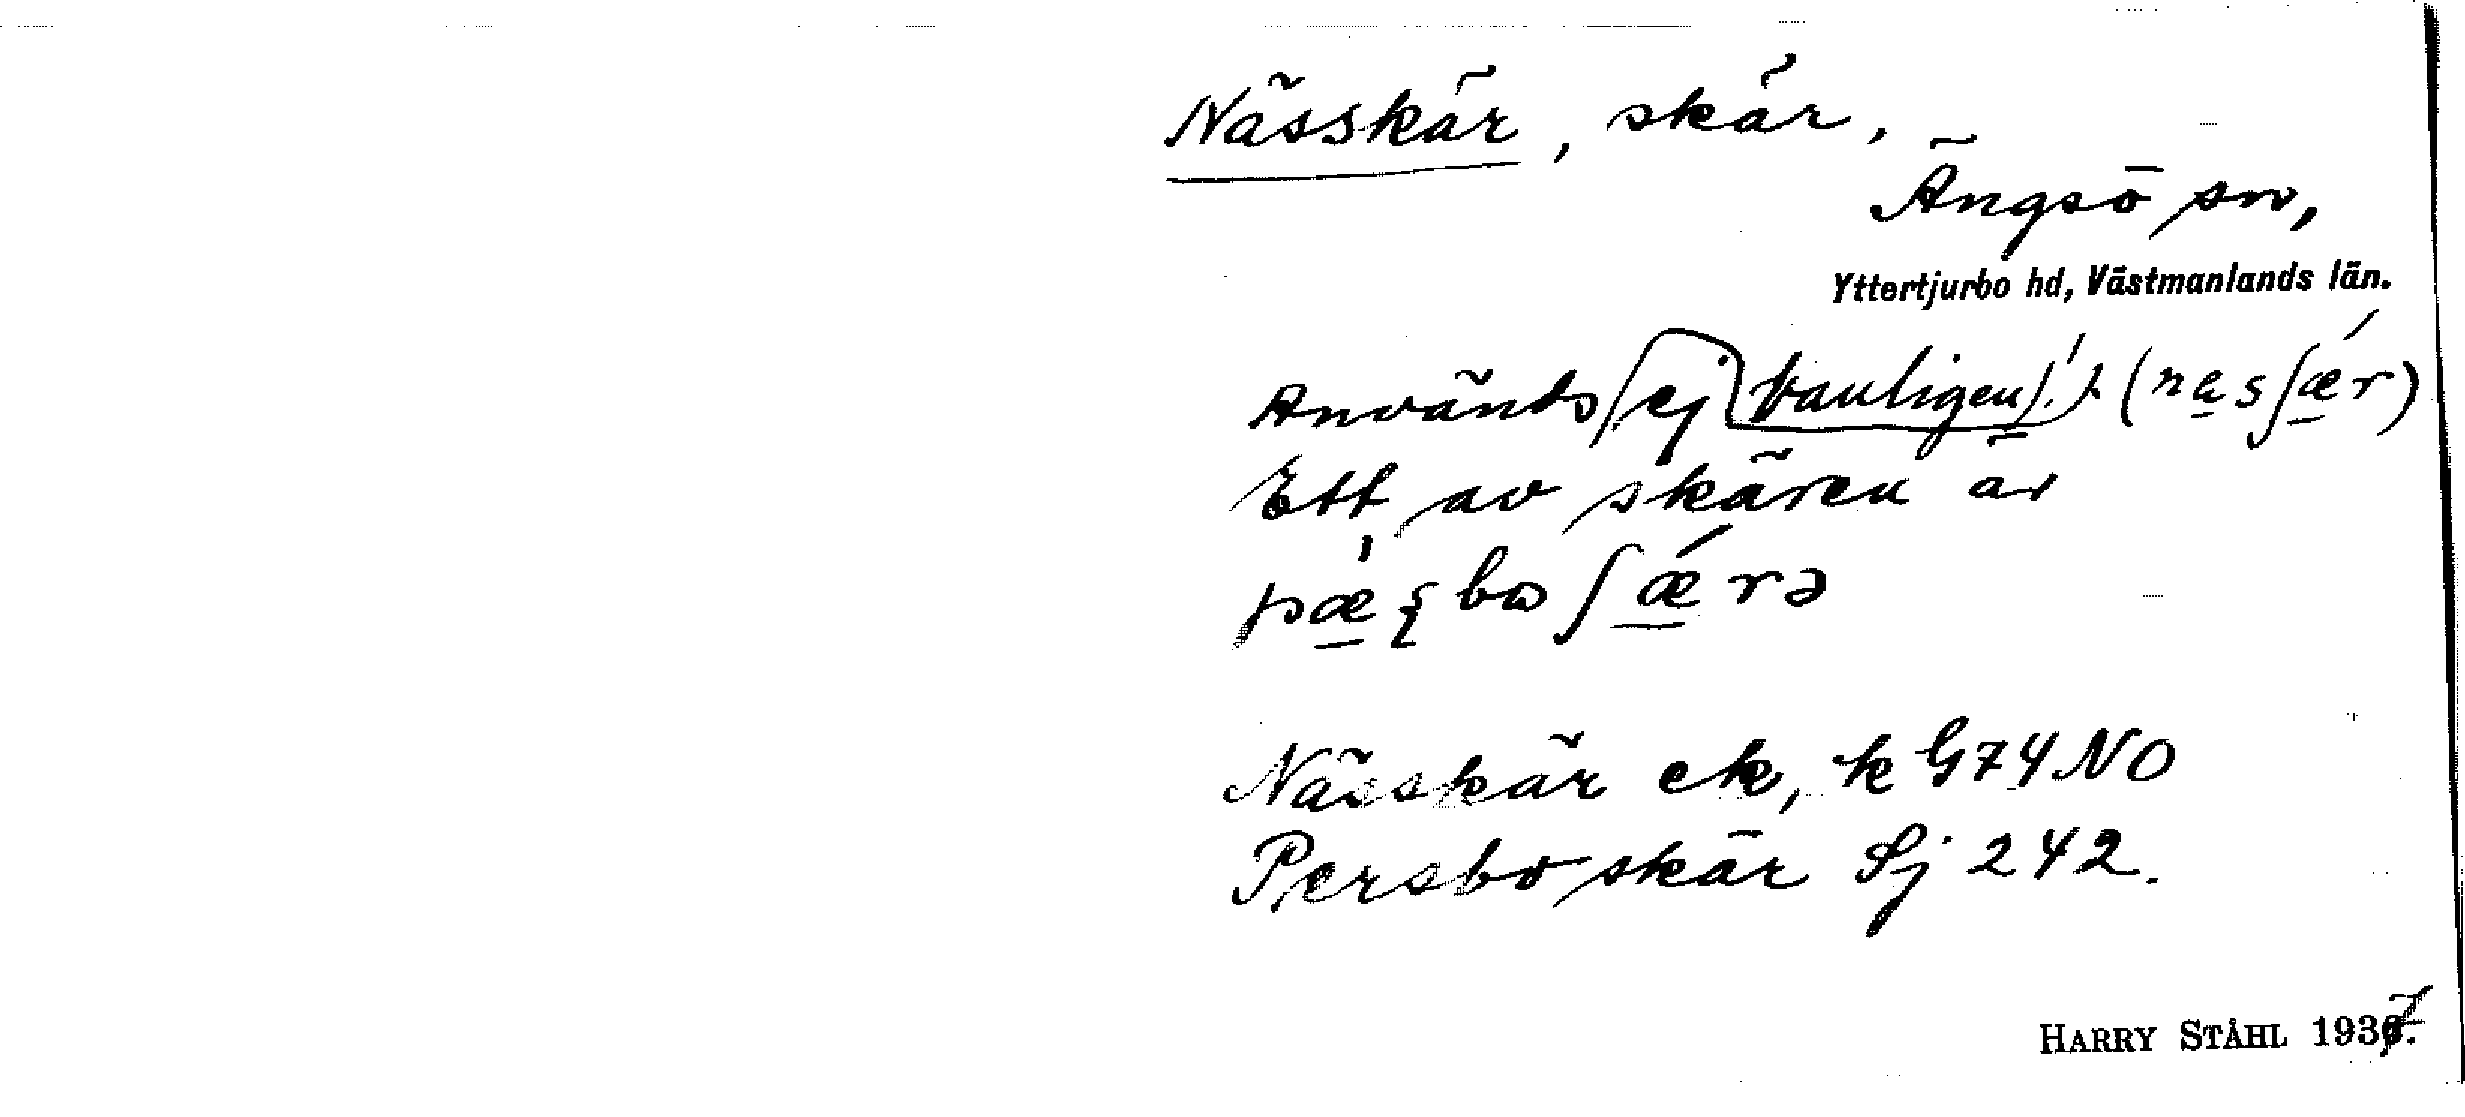 Nässkär, skär.
Ängsö sn,
Yttertjurbo hd, Västmanlands län.
Används ej vanligen! (nesʃæ´r)
Ett av skären är
pæ´ʂboʃæ´rə
Nässkär ek, k G74NO
Persboskär Sj 242.
HARRY STÅHL 1937.